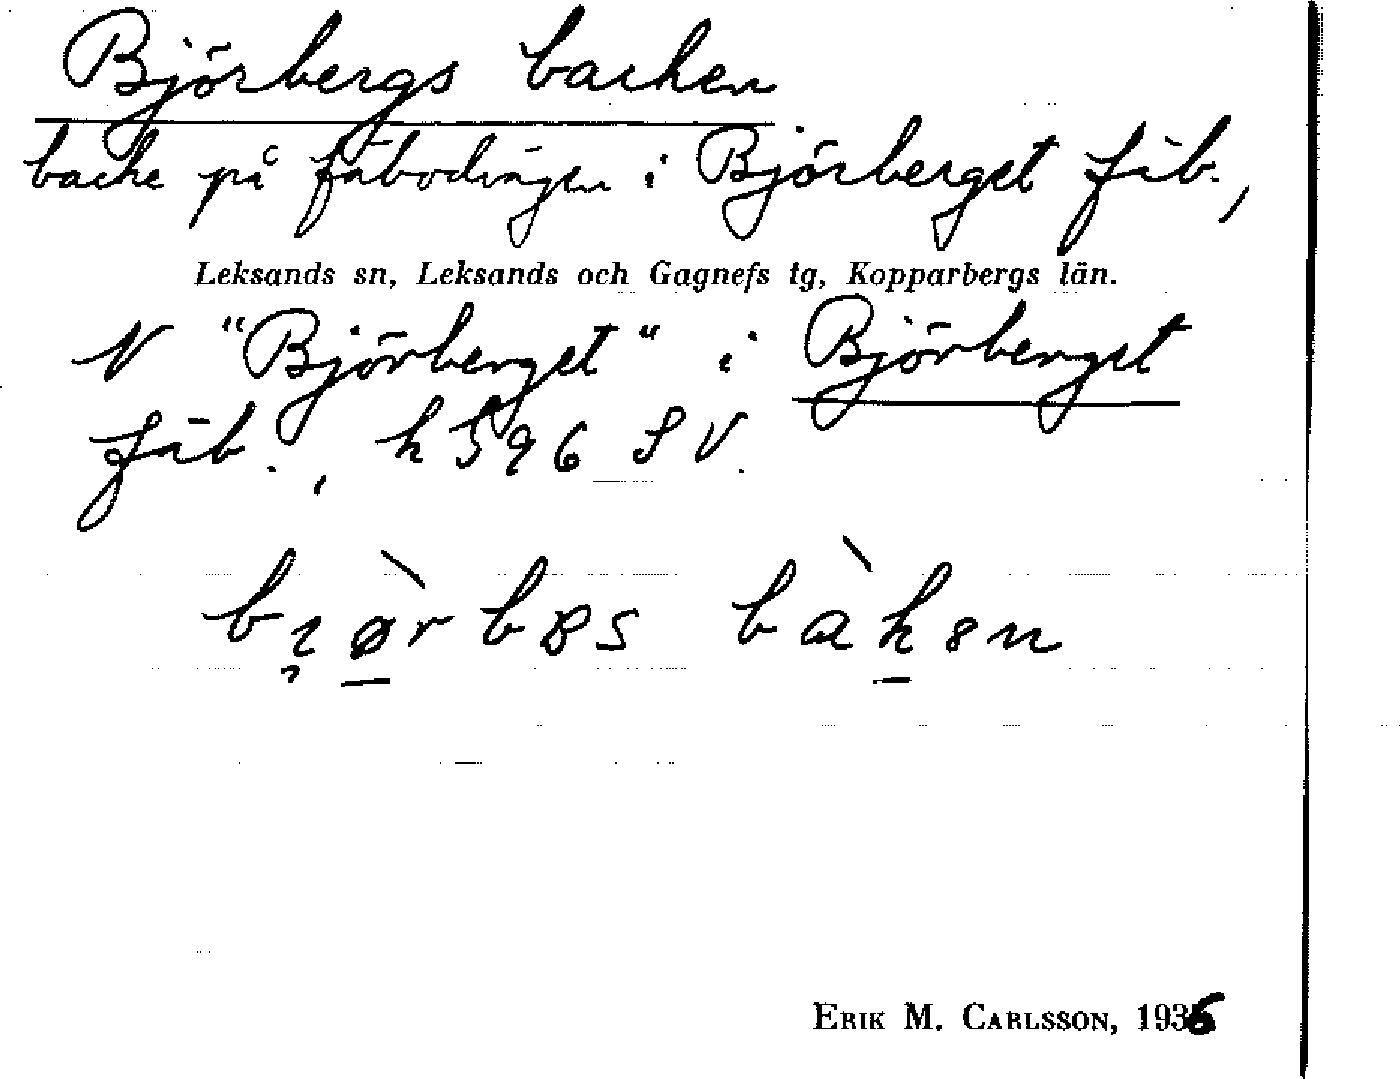 Björbergs backen
backe på fäbodvägen i Björberget fäb.,
Leksands sn, Leksands och Gagnefs tg, Kopparbergs län.
N "Björberget" i Björberget
fäb., k 596 SV.
ERIK M. CARLSSON, 1936